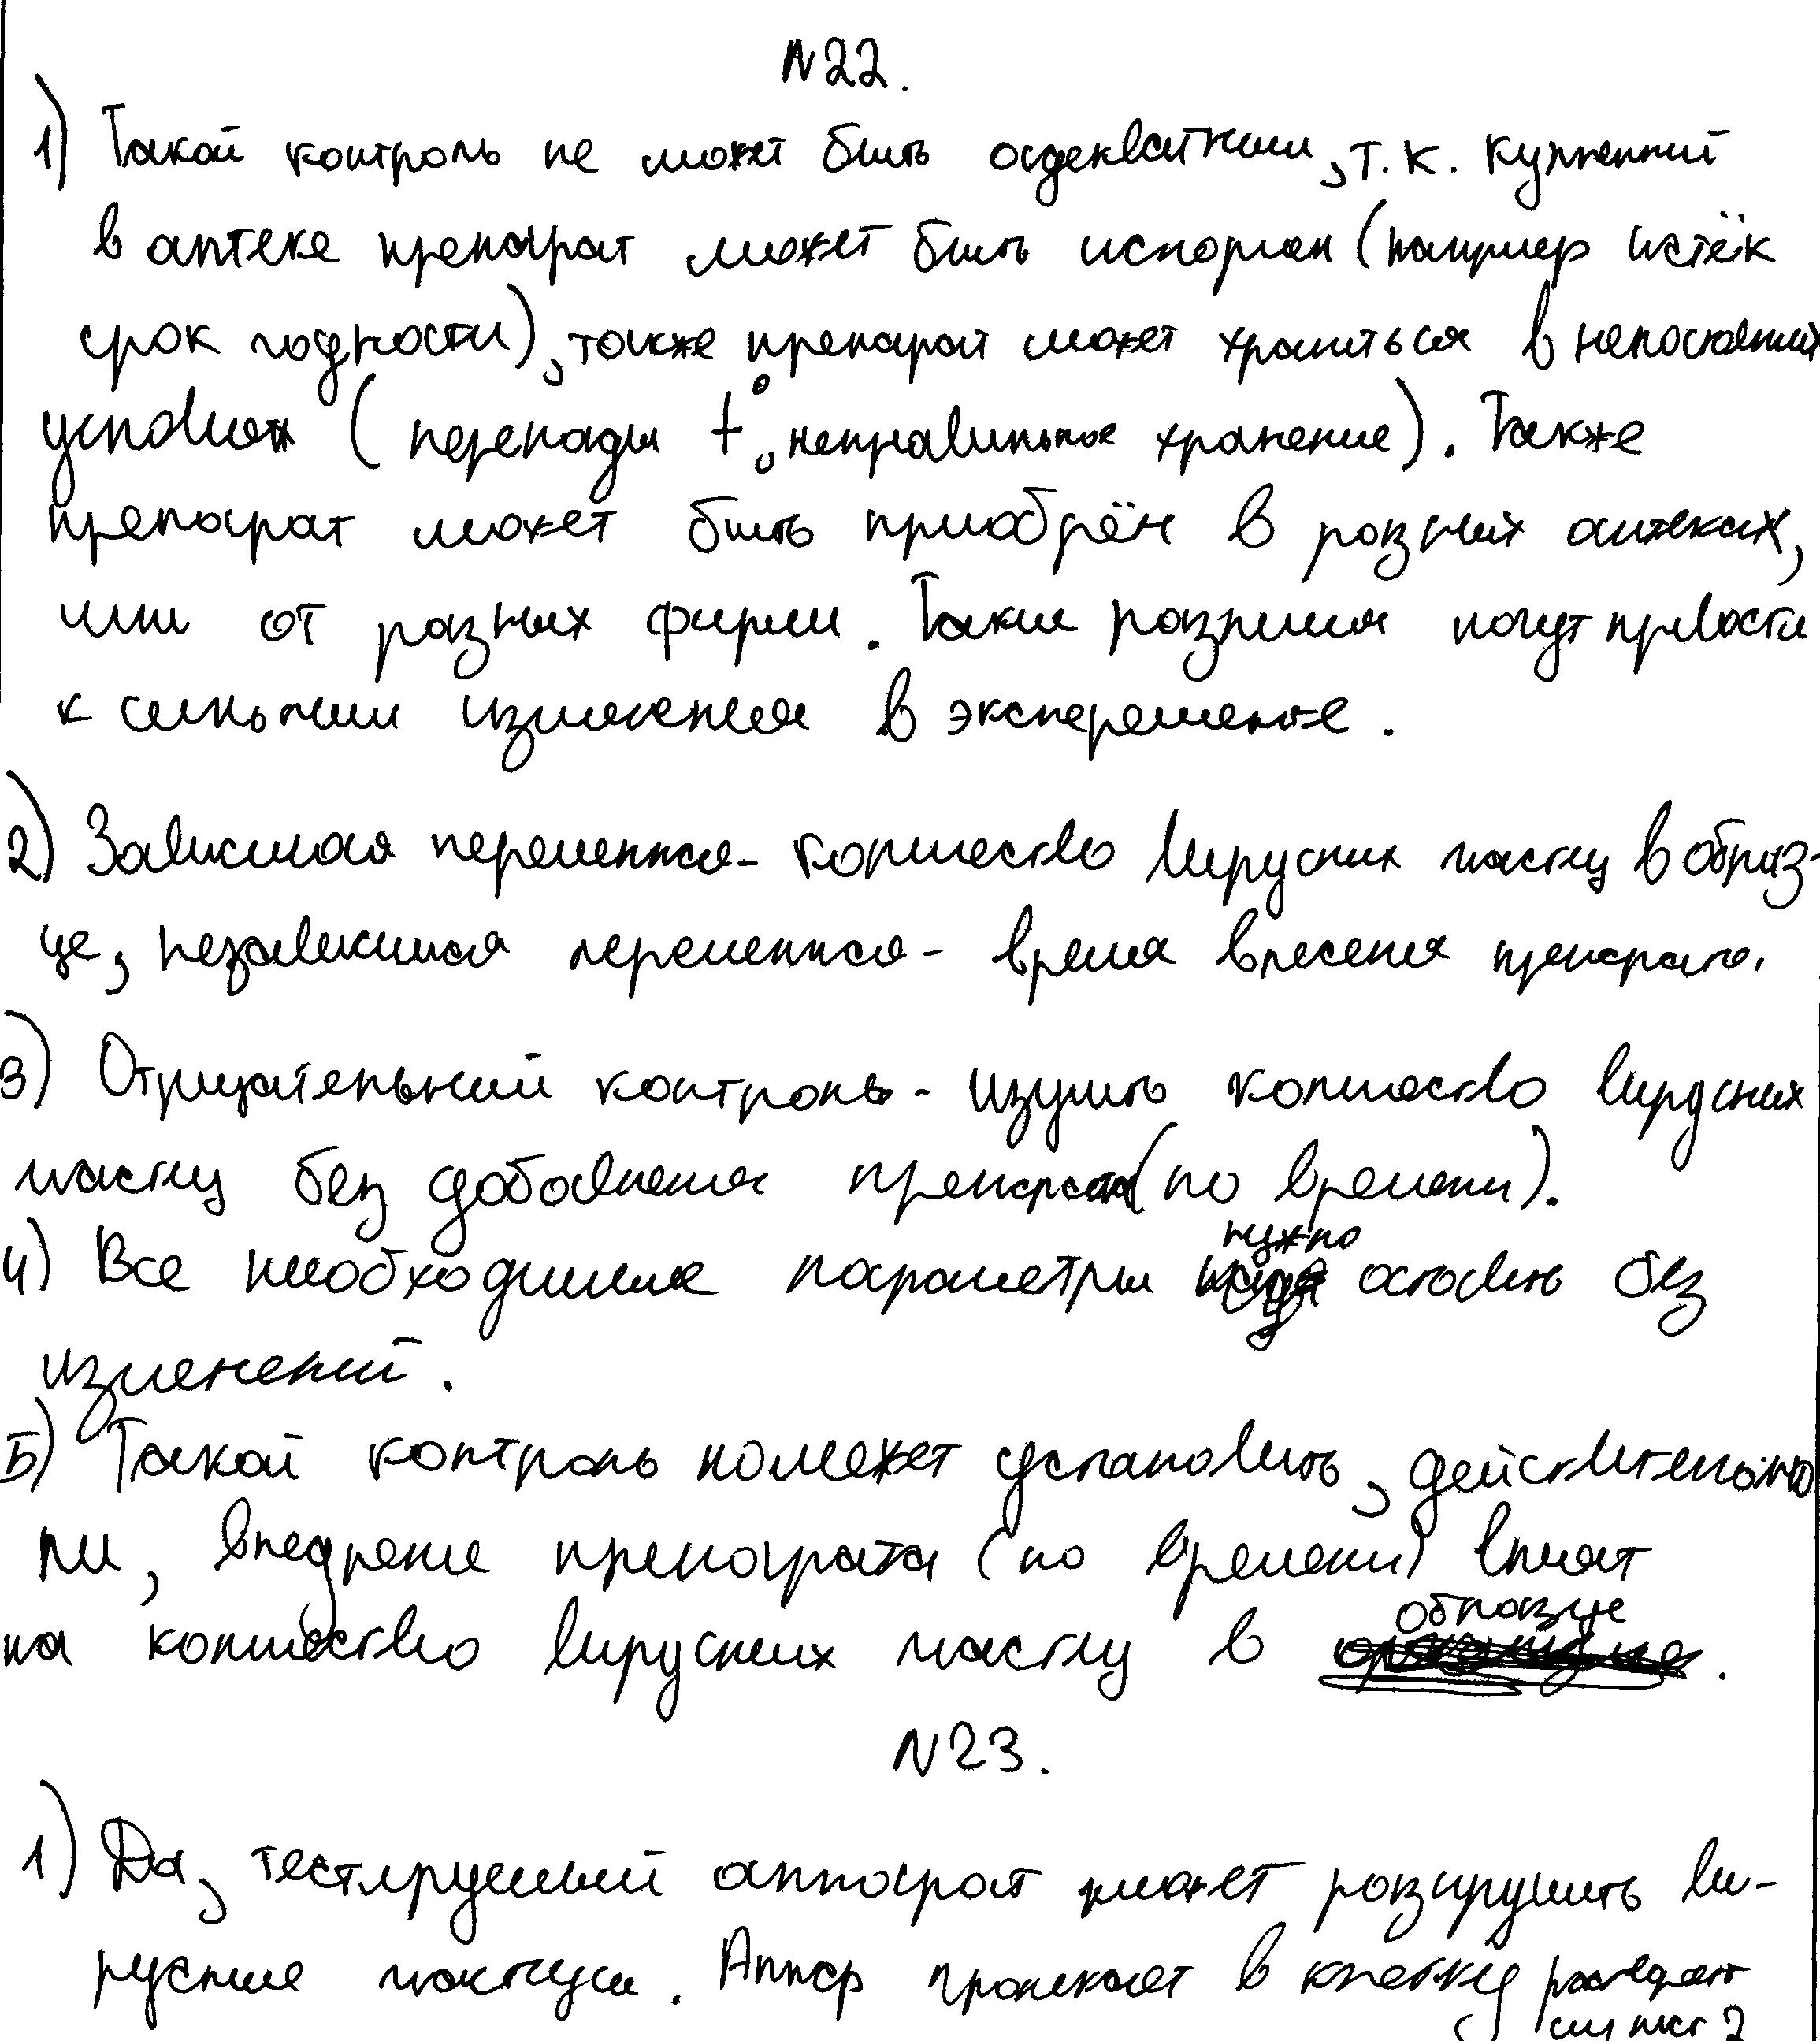 N22.
1) Такой контроль не может быть адекватным, т.к. купленный
в аптеке препарат может быть испорчен (например истёк
срок годности), также препарат может храниться в непостоянных
условиях (перепады t°, неправильное хранение). Также
препарат может быть приобрён в разных аптеках,
или от разных фирм. Такие различия могут привести
к сильным изменения в эксперементе.
2) Зависимая переменная - количество вирусных частиц в образ-
це, независимая переменная - время внесения препарата.
3) Отрицательный контроль - изучить количество вирусных
частиц без добавления препарата (по времени).
4) Все необходимые параметры нужно оставить без
изменений.
5) Такой контроль поможет установить, действительно
ли, внедрение препарата (по времени) влияет
на количество вирусных частиц в образце.
N23.
1) Да, тестируемый аппарат может разрушить ви-
русные частицы. проникает в клетку